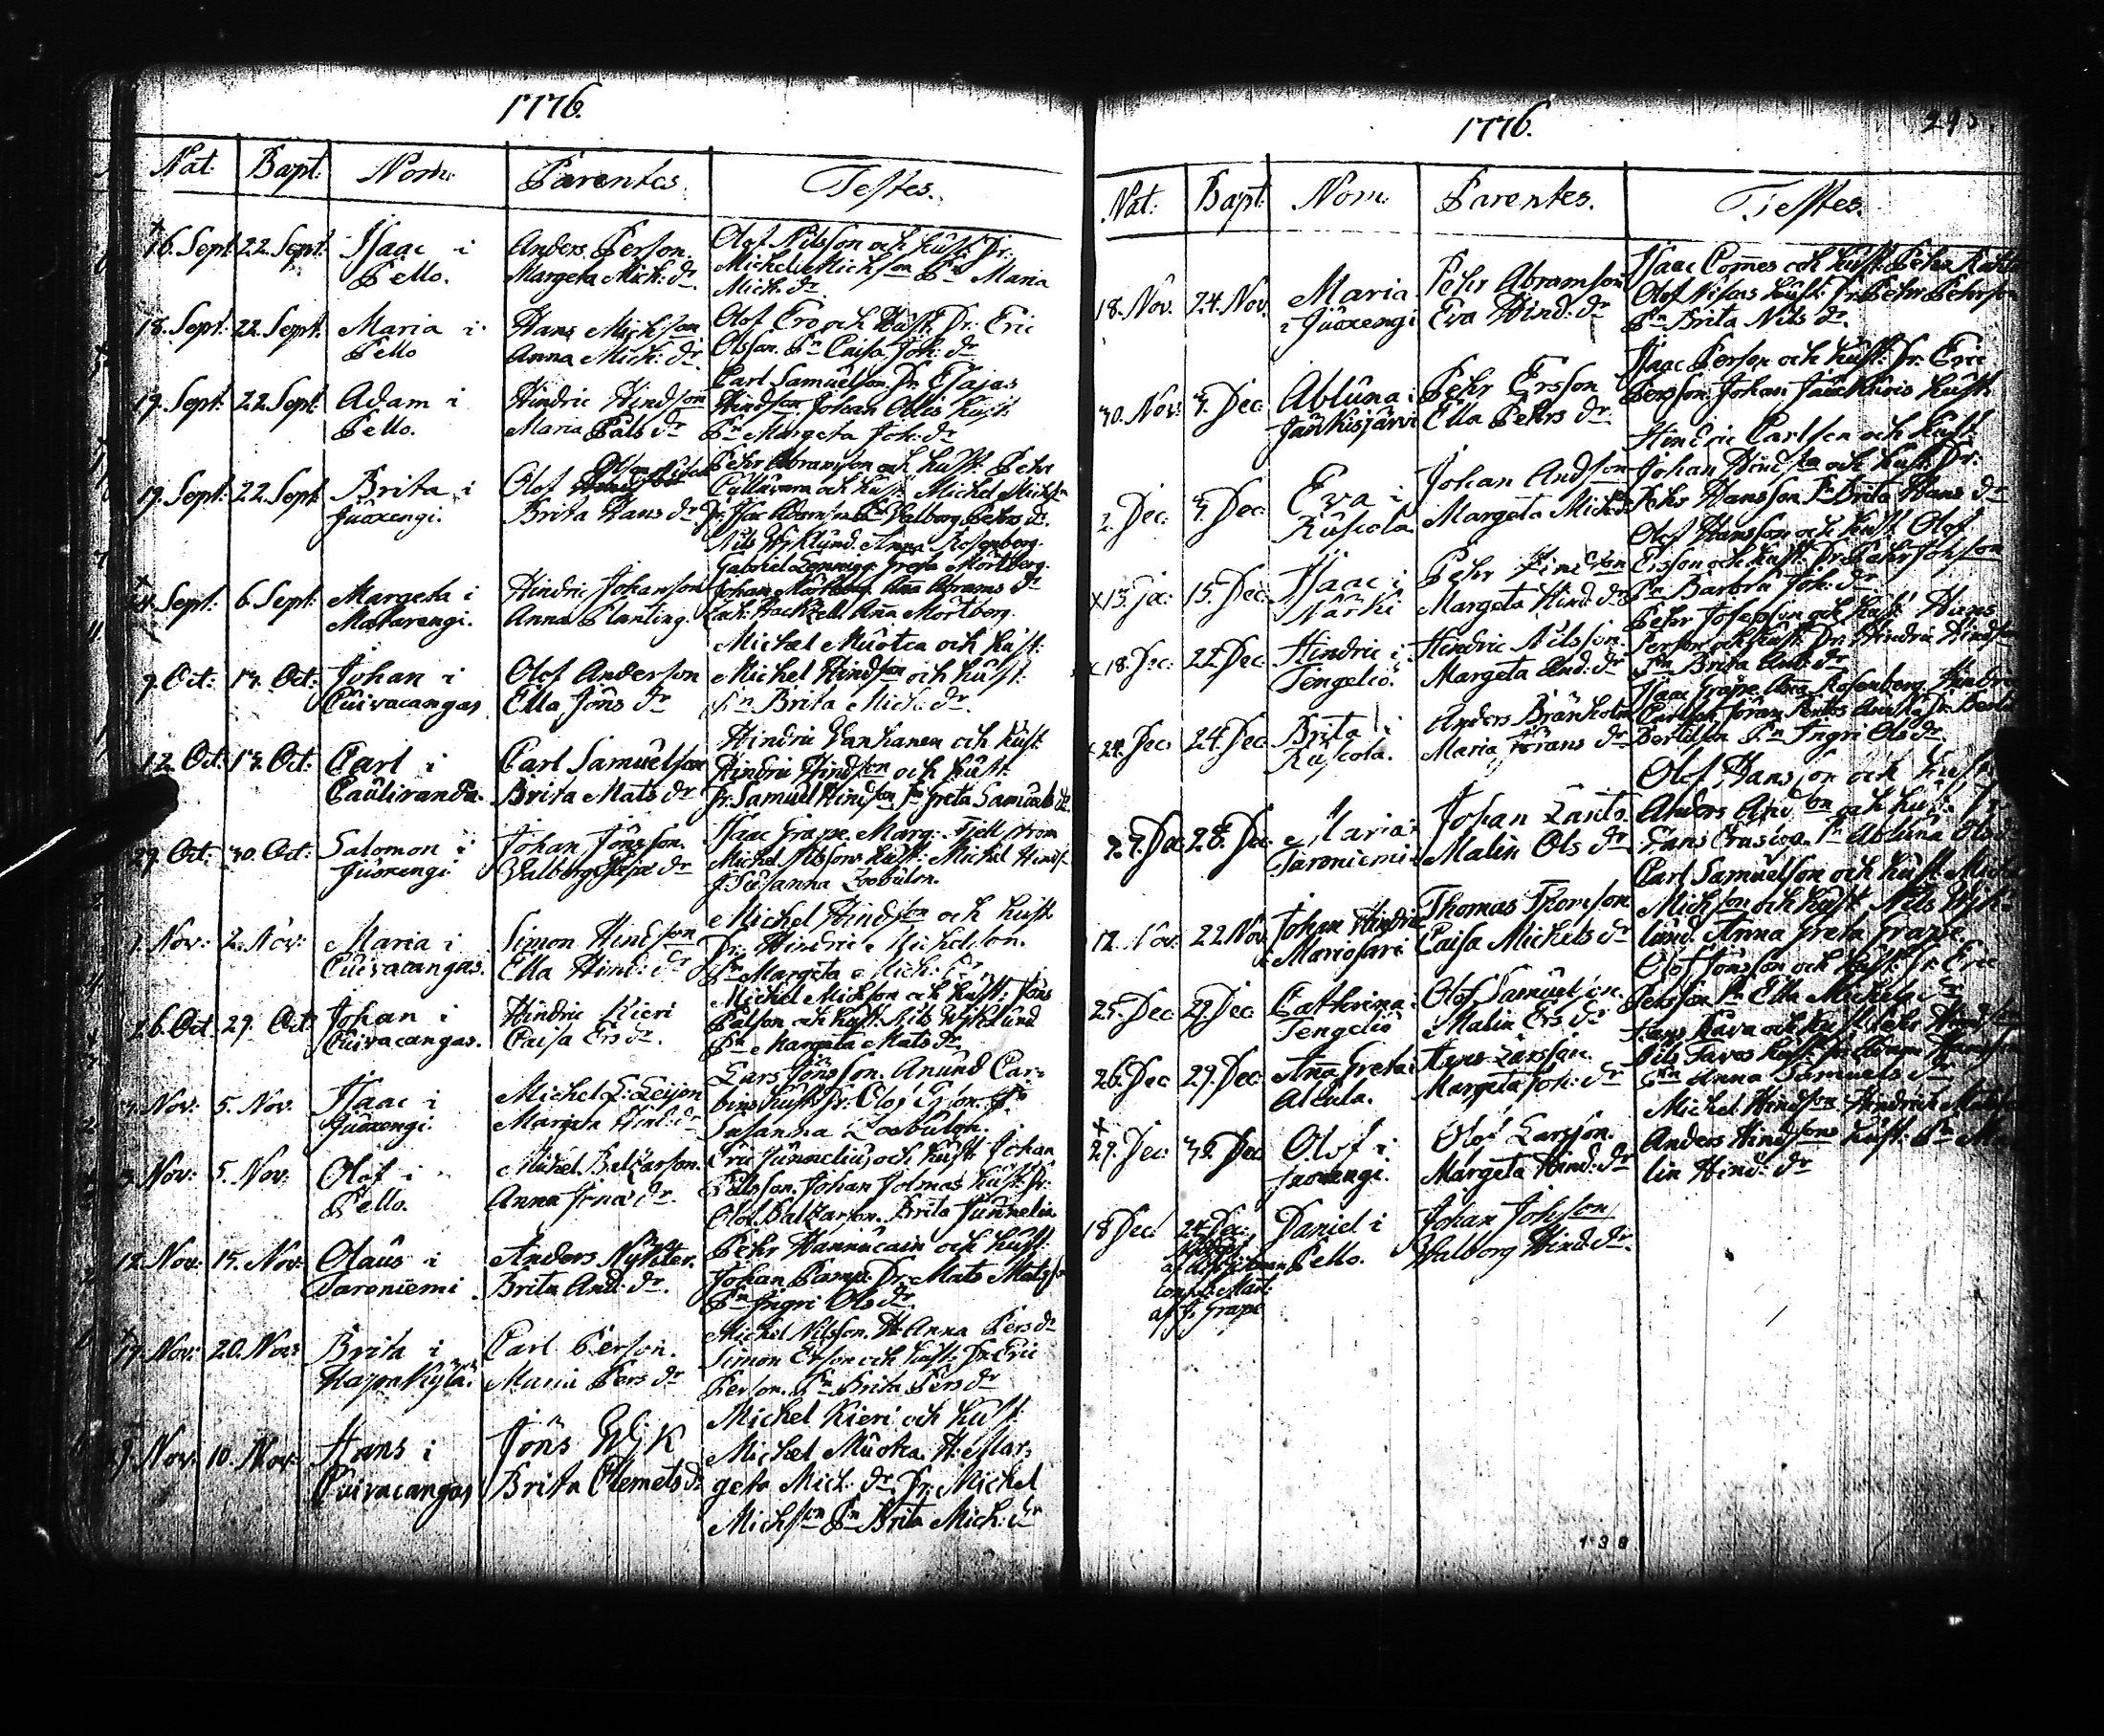 1776.
Nat: Bapt: Nom: Parentes. Testes.
16. Sept: 22. Sept: Isaac i Pello.
Anders Person.
Margeta Mich: dr.
Olof Nilsson och hust: Dr.
Michel Michson Pn Maria
Mich: dr.
18. Sept: 22. Sept: Maria i
Pello
Hans Michson
Anna Mich: dr.
Olof Ero och Hust: Dr: Eric
Olsson. Pn Caisa Joh: dr
19. Sept: 22. Sept: Adam i
Pello.
Hindric Hindson
Maria Påls dr
Carl Samuelson. Dr. Esajas
Hindson Johan Ollis hust:
Pn Margeta Joh: dr
19. Sept: 22. Sept: Brita i
Juoxengi.
Olof
Brita Hans dr
Pehr Abramson och hust: Pehr
och hust: Michel
Valborg Pehrs dr.
Nils Wiklund. Anna Rosenberg.
Greta Mörtberg.
Sept: 6. Sept: Margeta i
Matarengi.
Hindric Johanson
Anna Planting.
Johan Mörtberg. Ana Abrams dr
Zach: Hackzell Ana Mörtberg.
9. Oct: 13. Oct: Johan i
Cuivacangas
Olof Anderson
Ella Jöns dr
Michel Muotca och hust:
Michel Hindson och hust:
Pn Brita Mich: dr.
12. Oct: 13. Oct: Carl i
Cauliranda.
Carl Samuelson
Brita Mats dr
Hindric Vanhanen och hust:
Hindric Hindson och hust:
Dr. Samuel Hindson Pn Greta Samuels dr.
29. Oct: 30. Oct: Salomon i
Juoxengi
Johan Jönsson.
Valborg dr
Isaac Grape. Marg: Fjellström
Michel Nilssons hust: Michel
Susanna Zoobulon.
1. Nov: 2. Nov: Maria i
Cuivacangas.
Simon Hindson
Ella Hind: dr
Michel Hindson och hust
Dr. Hindric Michelson.
Pn Margeta Mich: dr.
26. Oct. 29. Oct: Johan i
Cuivacangas.
Hindric Kieri
Caisa Ers dr.
Michel Michson och hust: Jöns
Pålson och hust: Nils Wiklund
Pn Margeta Mats dr.
3. Nov: 5. Nov: Isaac i
Juoxengi.
Michel E: Leijon
Margeta Hind: dr
Lars Jönsson. Anund Car-
bins hust: Dr: Olof
Susanna Zoobulon.
3. Nov: 5. Nov: Olof i
Pello.
Michel Baltzarson.
Anna dr.
Eric Junnelius och hust: Johan
Pålsson. Johan Jolmas hust: Dr:
Olof Baltzarson. Brita Junnelia
12. Nov: 17. Nov: Olaus i
Taroniemi
Anders Nykter.
Brita And: dr.
Pehr Hannucain och hust:
Johan Pamp. Dr. Mats Matsson
Pn Ingri Ols dr.
19. Nov: 20. Nov: Brita i
Hapakylä.
Carl Person.
Maria Pers dr
Michel Nilsson. H. Anna Pers dr
Simon Erson och hust: Dr. Eric
Person. Pn Brita Pers dr
9. Nov: 10. Nov: Hans i
Cuivacangas
Jöns Wik
Brita Clemets dr
Michel Kieri och hust:
Michel Muotca. H. Mar-
geta Mich: dr. Dr. Michel
Michson Pn Brita Mich: dr
1776.
295.
Nat: Bapt: Nom: Parentes. Testes.
18. Nov: 24. Nov: Maria
i Juoxengi
Pehr Abramson
Eva Hind: dr
Isaac Comes och hust: Pehr
Olof Nisas hust: Dr. Pehr Pehrson
Pn Brita Nils dr.
30. Nov: 3. Dec: Abluna i
Jänkisjärvi
Pehr Ersson
Ella Pehrs dr.
Isaac Person och hust: Dr. Eric
Persson. Johan hust.
2. Dec: 3. Dec: Eva i
Ruscola
Johan Andson
Margeta Mich: dr
Eric Carlson och hust
Johan Hindson och hust: Dr.
Pehr Hansson. Pn Brita Hans dr
13. Dec: 15. Dec: Isaac i
Närki
Pehr
Margeta Hind: dr
Olof Hansson och hust Olof
Ersson och hust: Dr. Pehr Johson
Pn Barbra Joh: dr.
18. Dec: 22. Dec: Hindric i
Tengeliö.
Hindric Nilsson.
Margeta And: dr
Pehr Josepson och hust: Hans
Person och hust: Dr. Hindric Hindson
Pn Brita And: dr
24. Dec: 24. Dec: Brita i
Ruscola.
Anders Brånholm
Maria Jörans dr
Isaac Grape. Ana Rosenberg.
Pn Ingri Ols dr.
27. Dec: 28. Dec: Maria i
Taroniemi
Johan Lants.
Malin Ols dr
Olof Hansson och hust
Anders Andson och hust:
Pn Abluna Ols dr
12. Nov: 22. Nov: Johan Hindric
i Mariosari
Thomas Thomson
Caisa Michels dr
Carl Samuelson och hust: Michel
Michson och hust Nils Wik-
lund. Anna Greta Grape.
25. Dec: 29. Dec: Catharina i
Tengeliö
Olof Samuelson.
Malin Ers dr
Olof Jönsson och hust: Dr. Eric
Persson Pn Ella Michels dr
26. Dec: 29. Dec: Ana Greta i
Alcula.
Hans Larsson.
Margeta Joh: dr
Hans Kåva och hust: Pehr
Nils Tavos hust:
Pn Anna Samuels dr
29. Dec: 30. Dec: Olof i
Juoxengi.
Olof Larsson.
Margeta Hind: dr
Michel Hindson Hindric
Anders Hindsons hust: Pn Ma-
lin Hind: dr
18 Dec: 24. Dec:
Daniel i
Pello.
af J. Grape
Johan Johson
Walborg Hind: dr.
138